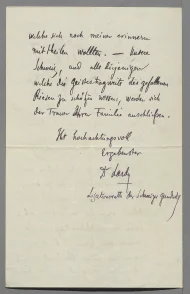 welche sich noch meiner erinnern
mittheilen wollten. — Unsere
Schweiz, und alle diejenigen
welche die geistestiefe des gefallenen
Riesen zu schätzen wissen, werden sich
der Trauer Ihrer Familie anschließen.
Mit hochachtungsvoll
Ergebenster
Dr
der Schweizer